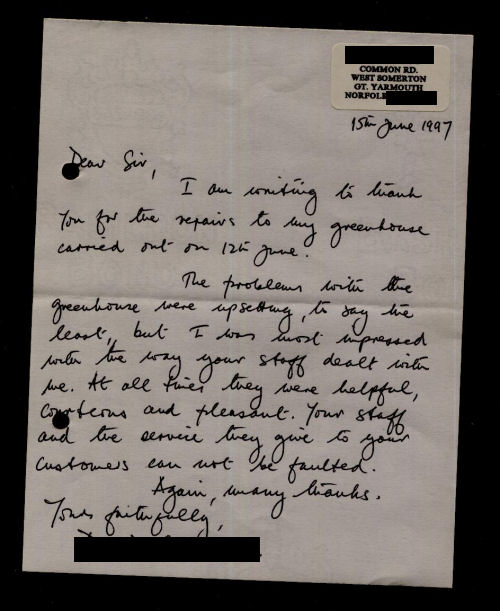 COMMON RD.
WEST SOMERTON
GT. YARMOUTH
NORFOLK
15th June 1997
Dear Sir,
I am writing to thank
you for the repairs to my greenhouse
carried out on 12th June.
The problems with the
greenhouse were upsetting, to say the
least, but I was most impressed
with the way your staff dealt with
me. At all times they were helpful,
courteous and pleasant. Your staff
and the service they give to your
customers can not be faulted.
Again, many thanks.
Yours faithfully,